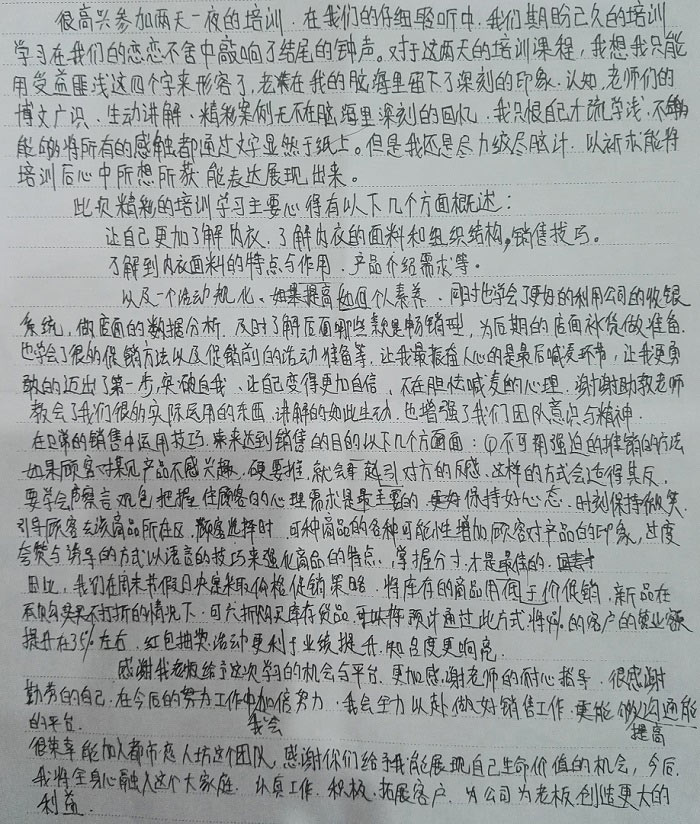 很高兴参加两天一夜的培训．在我们的仔细聆听中．我们期盼已久的培训
学习在我们的恋恋不舍中敲响了结尾的钟声。对于这两天的培训课程，我想我只能
用受益匪浅这四个字来形容了，老师在我的脑海里留下了深刻的印象．认知，老师们的
博文广识．生动讲解．精彩案例无不在脑海里深刻的回忆．我只恨自己才疏学浅．不
能够将所有的感触都通过文字显然于纸上。但是我还是尽力绞尽脑汁．以祈求能将
培训后心中所想所获能表达展现出来。
此次精彩的培训学习主要心得有以下几个方面概述：
让自己更加了解内衣．了解内衣的面料和组织结构，销售技巧。
了解到内衣面料的特点与作用．产品介绍需求等。
以及一个活动规化、如果提高如何个人素养．同时也学会了更好的利用公司的收银
系统，做店面的数据分析．及时了解店面哪些款是畅销型，为后期的店面补货做准备．
也学会了很的促销方法以及促销前的活动准备等．让我最振益人心的是最后喊麦环节，让我更勇
敢的迈出了第一步，突破自我．让自己变得更加自信．不在胆怯喊麦的心理．谢谢助教老师
教会了我们很的实际运用的东西．讲解的如此生动．也增强了我们团队意识与精神．
在日常的销售中运用技巧．来达到销售的目的以下几个方面面：①不可用强迫的推销的方法
如果顾客对某见产品不感兴趣．硬要推，就会引对方的反感．这样的方式会适得其反．
要学会察言观色把握住顾客的心理需求是最主要的．更好保持好心态．时刻保持微笑．
引导顾客去该商品所在区．顾客选择时．可种商品的各种可能性增加顾客对产品的印象，过度
夸赞与诱导的方式以语言的技巧来强化商品的特点．掌握分寸．才是最佳的．
因此，我们在周末节假日决定采取价格促销策略．将库存的商品用低于价促销．新品在
打折的情况下．可六折购买库存货品．可以将预计通过此方式将的客户的营业额
提升在35%左右．红包抽奖活动更利于业绩提升．知名度更响亮．
感谢我老板给予这次学习的机会与平台．更加感谢老师的耐心指导．很感谢
勤劳的自己．在今后的努力工作中加倍努力．我会全力以赴做好销售工作．更能够沟通能
的平台． 我会 提高
很荣幸能加入都市恋人坊这个团队．感谢你们给予我能展现自己生命价值的机会，今后．
我将全身心融入这个大家庭．认真工作．积极．拓展客户．为公司为老板创造更大的
利益．